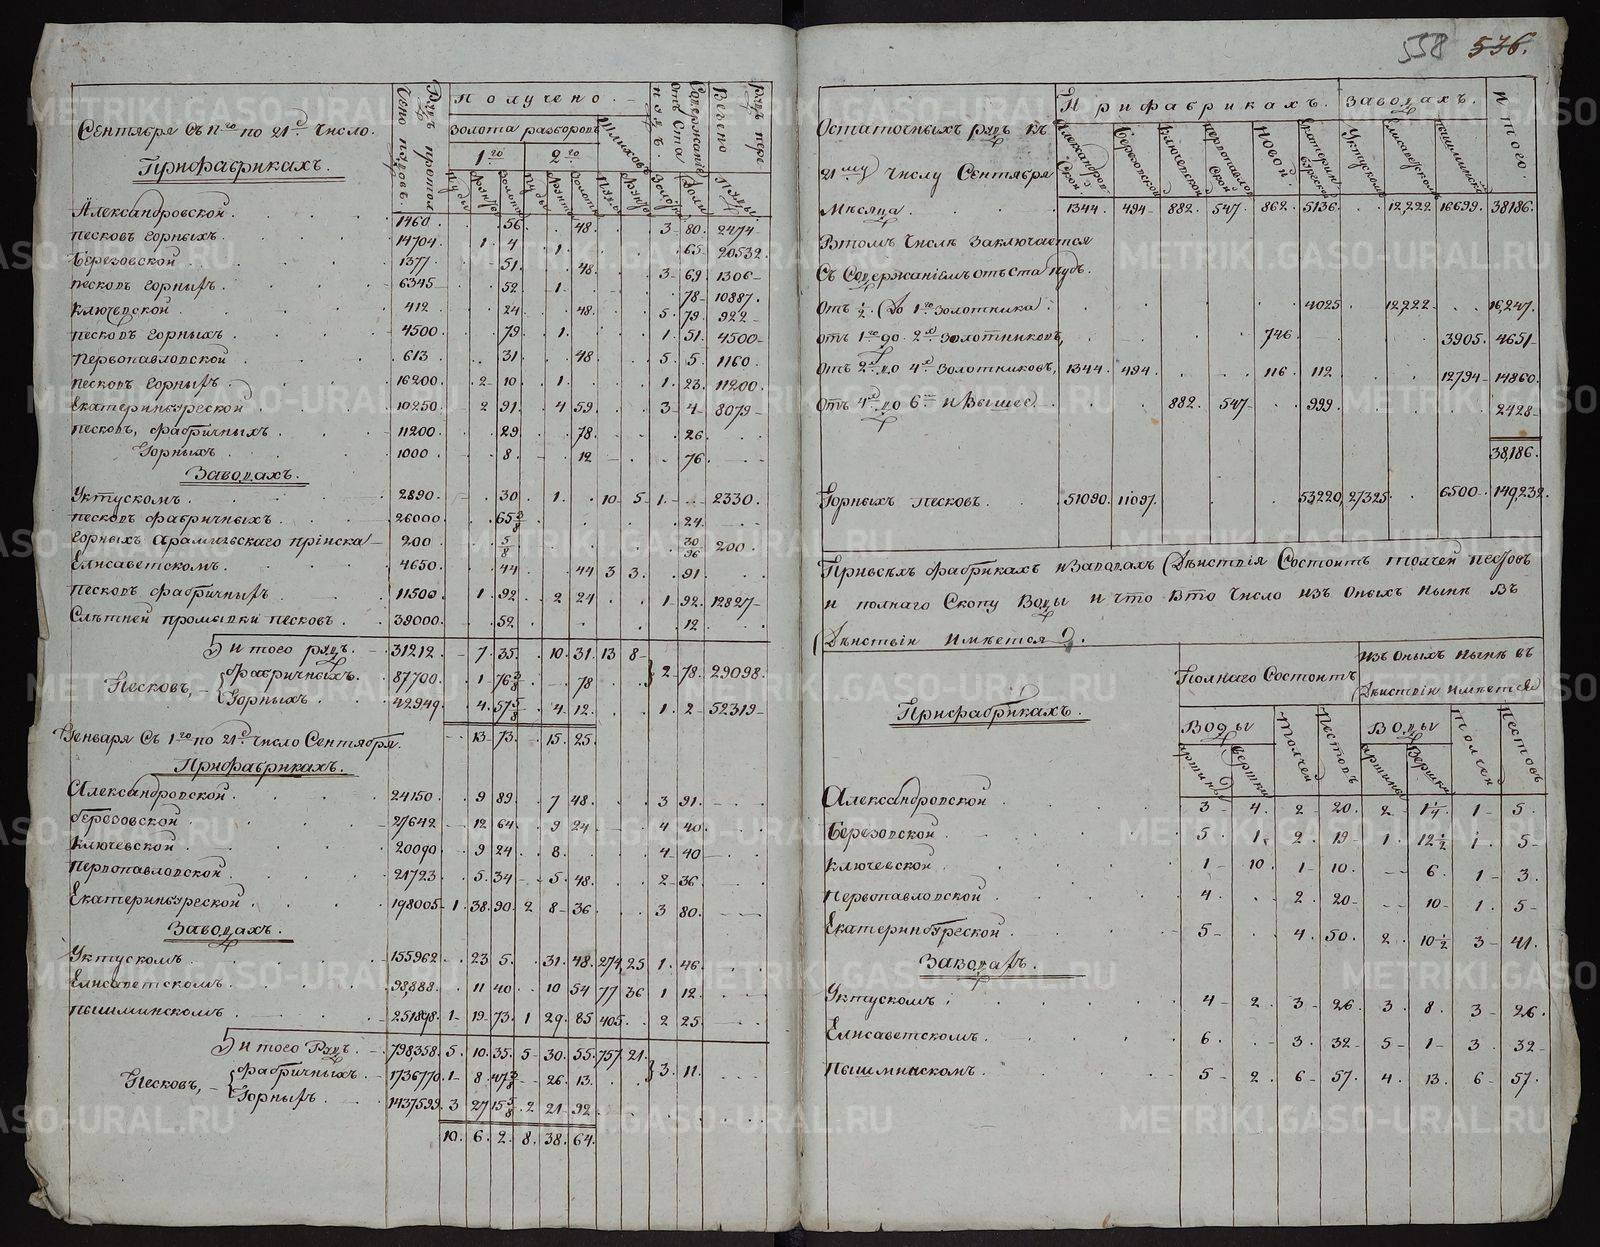 558 536.
Сентября Съ 11го по 21е Число.
Рудъ протол
Чено пудовъ.
Получено
Золота разборовъ
Шлиховъ
1го
2го
Пуды
Фунты
Золотн
Пуды
Фунты
Золотн
Пуды
Фунты
Содержаніе
отъ Ста
пудъ.
Золотн
Доли
Рудъ пере
Везено
Пуды
Прифабрикахъ.
Александровской . 1460. 56. 48. 3 - 80. 2474 -
песковъ горныхъ . 14704. 1. 4 1. 65. 20532.
Березовской 1377. 51. 48. 3 - 69. 1306 -
песковъ горныхъ . 6345 52. 1. 78 - 10887.
Ключевской . 412. 24. 48. 5. 79. 922 -
песковъ горныхъ . 4500. 79. 1. 1. 51. 4500 -
Первопавловской 613. 31. 48. 5. 5. 1160.
песковъ горныхъ . 16200. 2 - 10. 1. 1. 23. 11200.
Екатеринбургской . 10250. 2 91. 4 59. 3 - 4 - 8079 -
песковъ, фабричныхъ . 11200. 29 78. 26.
Горныхъ . 1000. 8. 12 76.
Заводахъ.
Уктускомъ . 2890. 30. 1. 10 - 5 - 1. 2330.
песковъ фабричныхъ . 26000. 65 3/8 24.
горныхъ Арамильскаго пріиска 200. 5/8 30/96 200.
Елисаветскомъ . 4650. 44. 44 3 3. 91.
песковъ фабричныхъ 11500. 1. 92. 2 24. 1. 92. 12827 -
Слѣтней промывки песковъ . 39000. 52. 12.
Итого рудъ. 31212. 7. 35. 10. 31. 13 8 -
Песковъ, фабричныхъ. 87700. 1. 76 3/8 78. 2. 78. 29098.
Горныхъ . 42949. 4. 57 5/8 4. 12. 1. 2 - 52319 -
13 - 73. 15. 25.
Генваря Съ 1го по 21е Число Сентября.
Прифабрикахъ.
Александровской . 24150. 9 89. 7 48. 3 91.
Березовской 27642. 12 64. 9 24 4 40.
Ключевской . 20090. 9 24 8. 4 - 40
Первопавловской . 21723. 5. 34 5. 48. 2 - 36
Екатеринбургской . 198005 - 1. 38. 90. 2 8 - 36 3 80.
Заводахъ.
Уктускомъ . 155962. 23 5. 31. 48. 274, 25 1. 46.
Елисаветскомъ . 98,888. 11 40. 10 54 77 36 1 12.
Пышминскомъ 251898. 1 - 19 - 73. 1 29. 85 405. 2 25.
Итого Рудъ. 798,358. 5. 10. 35. 5 - 30. 55. 757. 21.
Песковъ, фабричныхъ . 1736770. 1 - 8. 47 3/8 26. 13. 3. 11.
Горныхъ . 1437599. 3 27 15 5/8 2 21 - 92.
10. 6. 2. 8. 38. 64.
Остаточныхъ рудъ къ
21му Числу Сентября
Прифабрикахъ. Заводахъ. Итого.
Александров
Ской.
Березовской
Ключевской
Первопавлов
Ской
Новой.
Екатерин
бургской
Уктускомъ
Елисаветском
Пышминском
Мѣсяца . 1344. 494 - 882. 547. 862. 5136. 12,222. 16699. 38186.
Втомъ Числѣ Заключается
Съ Содержаніемъ отъ Ста пудъ.
Отъ ½. До 1го Золотника . 4025 12,222 16,247.
отъ 1го до 2хъ Золотниковъ, 746 3905. 4651 -
отъ 2хъ до 4хъ Золотниковъ, 1344. 494. 116 112 12794 - 14860.
отъ 4хъ до 6ти и Выше . 882. 547. 999. 2428 -
38,186.
Горныхъ песковъ . 51090. 11097. 53220, 27325 6500. 149,232.
Привсѣхъ фабрикахъ и Заводахъ Дѣйствія Состоитъ толчей пестовъ
и полнаго Скопу Воды и что Вто Число изъ Оныхъ нынѣ Въ
Дѣйствіи Имѣется.
Полнаго Состоитъ
Изъ Оныхъ нынѣ въ
Дѣйствіи Имѣется
Воды
Аршины
Вершки
Толчей
Пестовъ
Воды
Аршины
Вершки
Толчей
Пестовъ
Прифабрикахъ.
Александровской 3 - 4. 2 20. 2 - 1¼. 1 - 5.
Березовской . 5. 1. 2 19 1. 12½. 1. 5 -
Ключевской . 1 - 10. 1 - 10. 6. 1 - 3.
Первопавловской . 4. 2. 20 10 - 1. 5 -
Екатеринбургской 5 - 4. 50. 2. 10½ 3 - 41.
Заводахъ.
Уктускомъ . 4 - 2 3 - 26. 3. 8. 3 - 26.
Елисаветскомъ . 6. 3. 32 5 - 1 - 3. 32 -
Пышминскомъ . 5 - 2. 6 - 57. 4. 13. 6 - 57.
METRIKI.GASO-URAL.RU